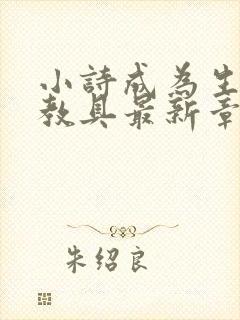 小詩成为生
教具最新章
朱绍良